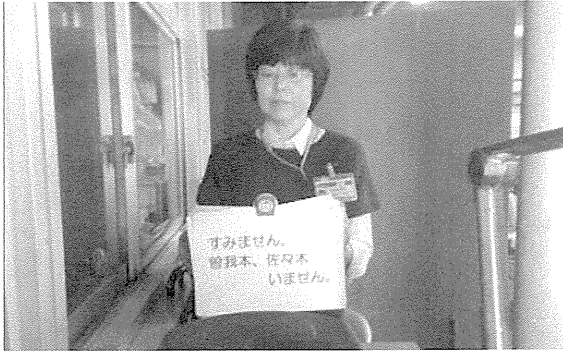 すみません。
曽我本、佐々木
いません。